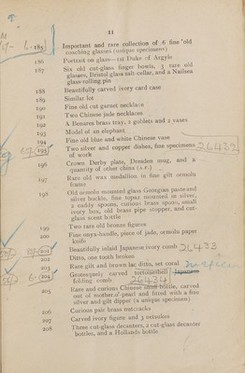 11
185 Important and rare collection of 6 fine old
coaching glasses (unique specimens)
186 Portrait on glass—1st Duke of Argyle
187 Six old cut-glass finger bowls, 3 rare old
glasses, Bristol glass salt cellar, and a Nailsea
glass rolling pin
188 Beautifully carved ivory card case
189 Similar lot
190 Fine old cut garnet necklace
191 Two Chinese jade necklaces
192 A Benares brass tray, 2 goblets and 2 vases
193 Model of an elephant
194 Fine old blue and white Chinese vase
195 Two silver and copper dishes, fine specimens
of work
196 Crown Derby plate, Dresden mug, and a
quantity of other china
197 Rare old wax medallion in fine gilt ormolu
frame
198 Old ormolu mounted glass Georgian paste and
silver buckle, fine topaz mounted in silver,
2 caddy spoons, curious brass spoon, small
ivory box, old brass pipe stopper, and cut-
glass scent bottle
199 Two rare old bronze figures
200 Fine onyx-handle, piece of jade, ormolu paper
knife
201 Beautifully inlaid Japanese ivory comb 26433
202 Ditto, one tooth broken
203 Rare gilt and brown lac ditto, set coral
204 Grotesquely carved tortoiseshell Japanese
folding comb 26434
205 Rare and curious Chinese scent bottle, carved
out of mother-o'-pearl and fitted with a fine
silver and gilt dipper (a unique specimen)
206 Curious pair brass nutcracks
207 Carved ivory figure and 3 netsukes
208 Three cut-glass decanters, 2 cut-glass decanter
bottles, and a Hollands bottle